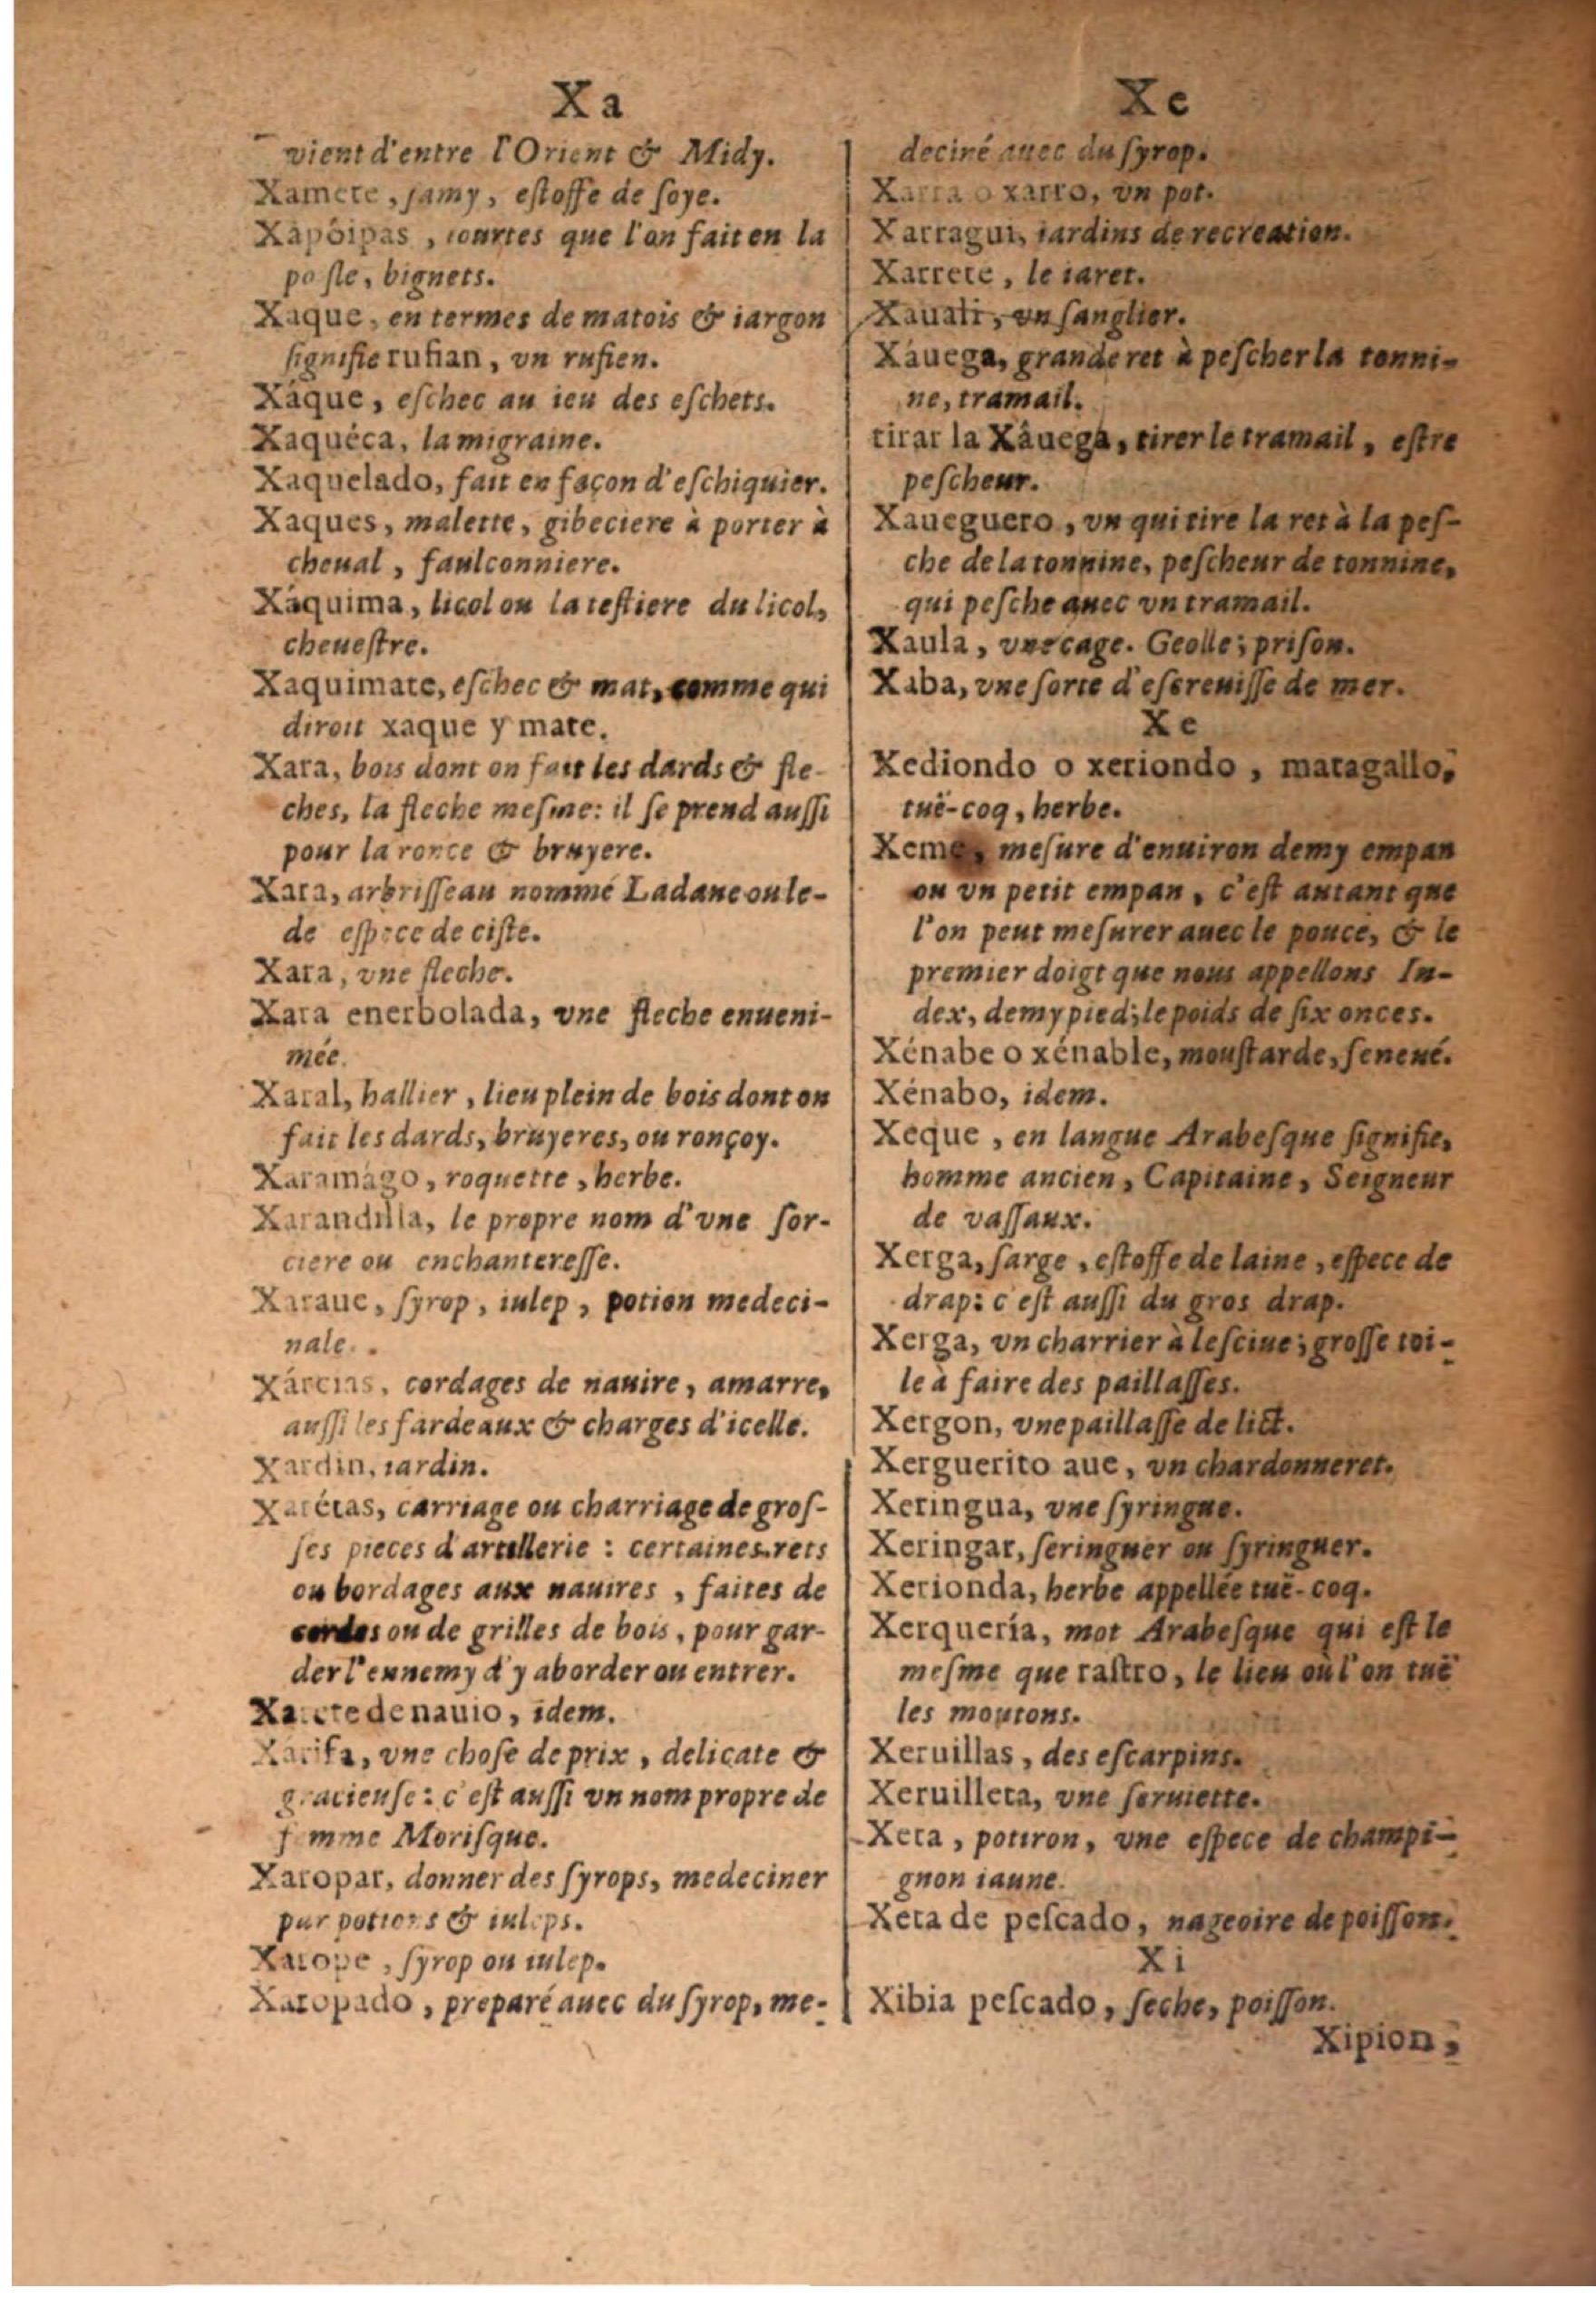 Xa
vient d'entre l'Orient & Midy.
Xamete, samy, eſtoffe de ſoye.
Xapóipas, tourtes que l'on fait en la
poſle, bignets.
Xaque, en termes de matois & iargon
ſignifie rufian, vn rufien.
Xáque, eſchec au ieu des eſchets.
Xaquéca, la migraine.
Xaquelado, fait en façon d'eſchiquier.
Xaques, malette, gibeciere à porter à
cheual, faulconniere.
Xáquima, licol ou la teſtiere du licol,
cheueſtre.
Xaquimate, eſchec & mat, comme qui
diroit xaque y mate.
Xara, bois dont on fait les dards & fle-
ches, la fleche meſme: il ſe prend auſſi
pour la ronce & bruyere.
Xara, arbriſſeau nommé Ladane ou le-
de eſpece de ciſte.
Xara, vne fleche.
Xara enerbolada, vne fleche enueni-
mée.
Xaral, hallier, lieu plein de bois dont on
fait les dards, bruyeres, ou ronçoy.
Xaramágo, roquette, herbe.
Xarandilla, le propre nom d'vne ſor-
ciere ou enchantereſſe.
Xaraue, ſyrop, iulep, potion medeci-
nale.
Xárcias, cordages de nauire, amarre,
auſſi les fardeaux & charges d'icelle.
Xardin, iardin.
Xarétas, carriage ou charriage de groſ-
ſes pieces d'artillerie : certaines rets
ou bordages aux nauires, faites de
cordes ou de grilles de bois, pour gar-
der l'ennemy d'y aborder ou entrer.
Xarete de nauio, idem.
Xárifa, vne choſe de prix, delicate &
gracieuſe: c'eſt auſſi vn nom propre de
femme Moriſque.
Xaropar, donner des ſyrops, medeciner
par potions & iuleps.
Xarope, ſyrop ou iulep.
Xaropado, preparé auec du ſyrop, me-
Xe
deciné auec du ſyrop.
Xarra o xarro, vn pot.
Xarragui, iardins de recreation.
Xarrete, le iaret.
Xauali, vn ſanglier.
Xáuega, grande ret à peſcher la tonni-
ne, tramail.
tirar la Xâuega, tirer le tramail, eſtre
peſcheur.
Xaueguero, vn qui tire la ret à la peſ-
che de la tonnine, peſcheur de tonnine,
qui peſche auec vn tramail.
Xaula, vne cage. Geolle; priſon.
Xaba, vne ſorte d'eſcreuiſſe de mer.
Xe
Xediondo o xeriondo, matagallo,
tuë-coq, herbe.
Xeme, meſure d'enuiron demy empan
ou vn petit empan, c'eſt autant que
l'on peut meſurer auec le pouce, & le
premier doigt que nous appellons In-
dex, demy pied; le poids de ſix onces.
Xénabe o xénable, mouſtarde, ſeneué.
Xénabo, idem.
Xeque, en langue Arabeſque ſignifie,
homme ancien, Capitaine, Seigneur
de vaſſaux.
Xerga, ſarge, eſtoffe de laine, eſpece de
drap: c'eſt auſſi du gros drap.
Xerga, vn charrier à leſciue; groſſe toi-
le à faire des paillaſſes.
Xergon, vne paillaſſe de lict.
Xerguerito aue, vn chardonneret.
Xeringua, vne ſyringue.
Xeringar, ſeringuer ou ſyringuer.
Xerionda, herbe appellée tuë-coq.
Xerquería, mot Arabeſque qui eſt le
meſme que raſtro, le lieu où l'on tuë
les moutons.
Xeruillas, des eſcarpins.
Xeruilleta, vne ſeruiette.
Xeta, potiron, vne eſpece de champi-
gnon iaune.
Xeta de peſcado, nageoire de poiſſon.
Xi
Xibia peſcado, ſeche, poiſſon.
Xipion,